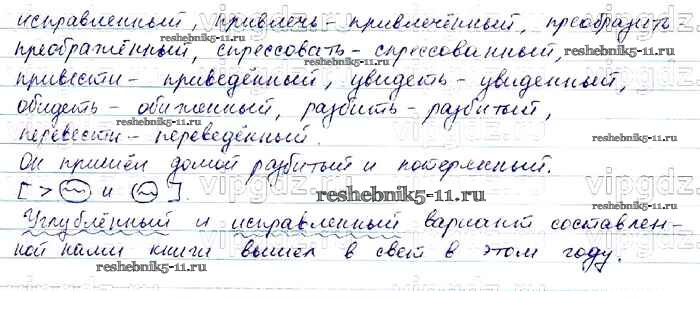 исправленный, привлечь - привлечённый, преобразить
преображённый, спрессовать - спрессованный,
привести - приведённый, увидеть - увиденный,
обидеть - обиженный, разбить - разбитый,
перевести - переведённый.
Он пришёл домой разбитый и потерянный.
[ > и ].
Углублённый и исправленный вариант составлен-
ной нами книги вышел в свет в этом году.
reshebnik5-11.ru
reshebnik5-11.ru
reshebnik5-11.ru
reshebnik5-11.ru
reshebnik5-11.ru
reshebnik5-11.ru
reshebnik5-11.ru
vipgdz